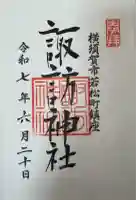 横須賀市若松町鎮座
諏訪神社
令和七年六月二十日